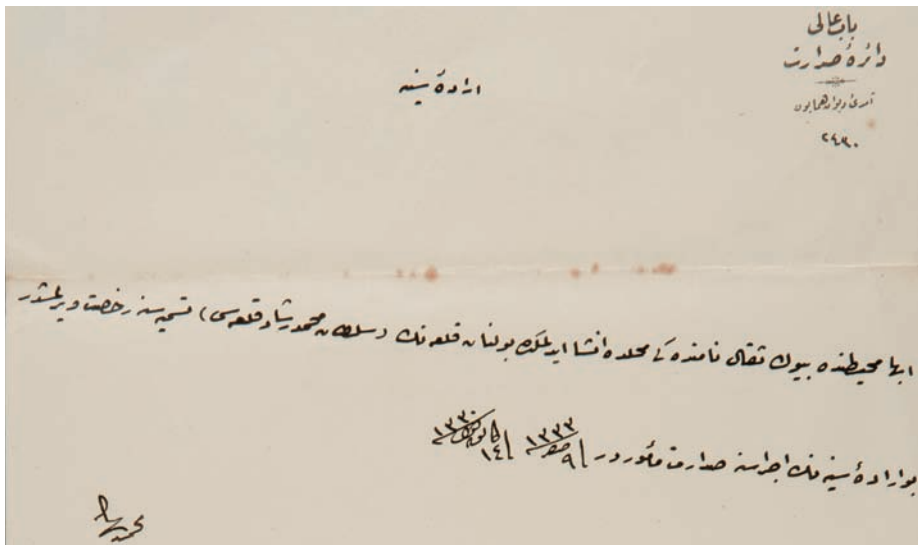 باب عالی
دائرهٔ صدارت
آمدئ دیوان همایون
ارادهٔ سنیه
ابها محیطنده بیوك ثقال نامنده كی محلده انشا ایدلمكده بولنان قلعه نك (سلطان محمد رشاد قلعه سی) تسمیه سنه رخصت ویرلمشدر
بو ارادهٔ سنیه نك اجراسنه صدارت مأموردر ٩ صفر ١٣٣٣ ١٤ كانون اول ١٣٣٠
محمد سعید